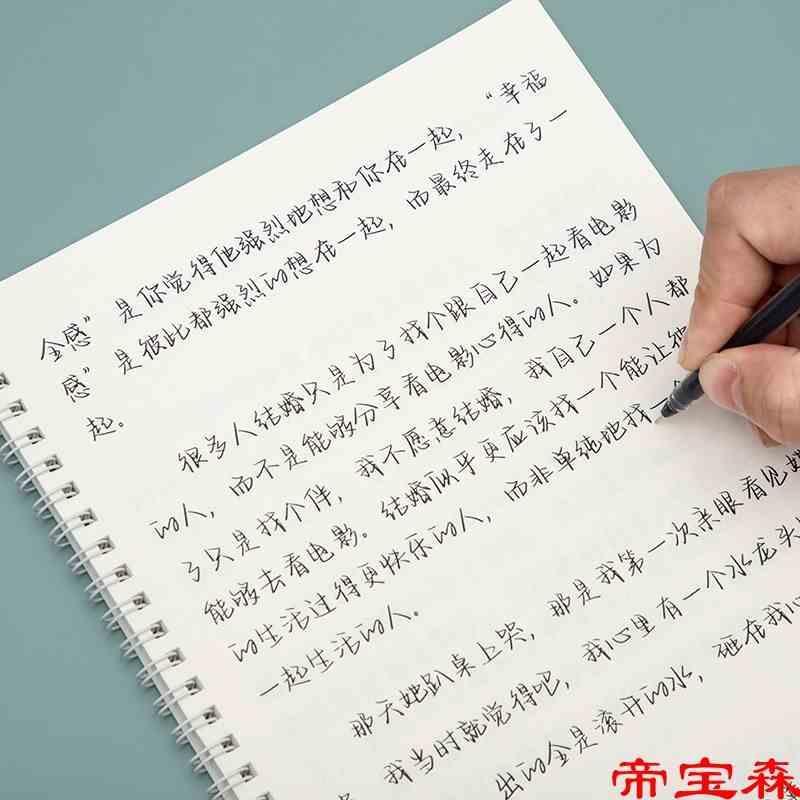 “幸福
全感”是你觉得他强烈地想和你在一起，
感”是彼此都强烈的想在一起，而最终走在了一
起。
很多人结婚只是为了找个跟自己一起看电影
的人，而不是能够分享看电影心得的人。如果为
了只是找个伴，我不愿意结婚，我自己一个人都
能够去看电影。结婚似乎更应该找一个能让彼
的生活过得更快乐的人，而非单纯地找一
一起生活的人。
那天她趴桌上哭，那是我第一次亲眼看见她
我当时就觉得吧，我心里有一个水龙头
出的全是滚开的水，砸在我心
帝宝森